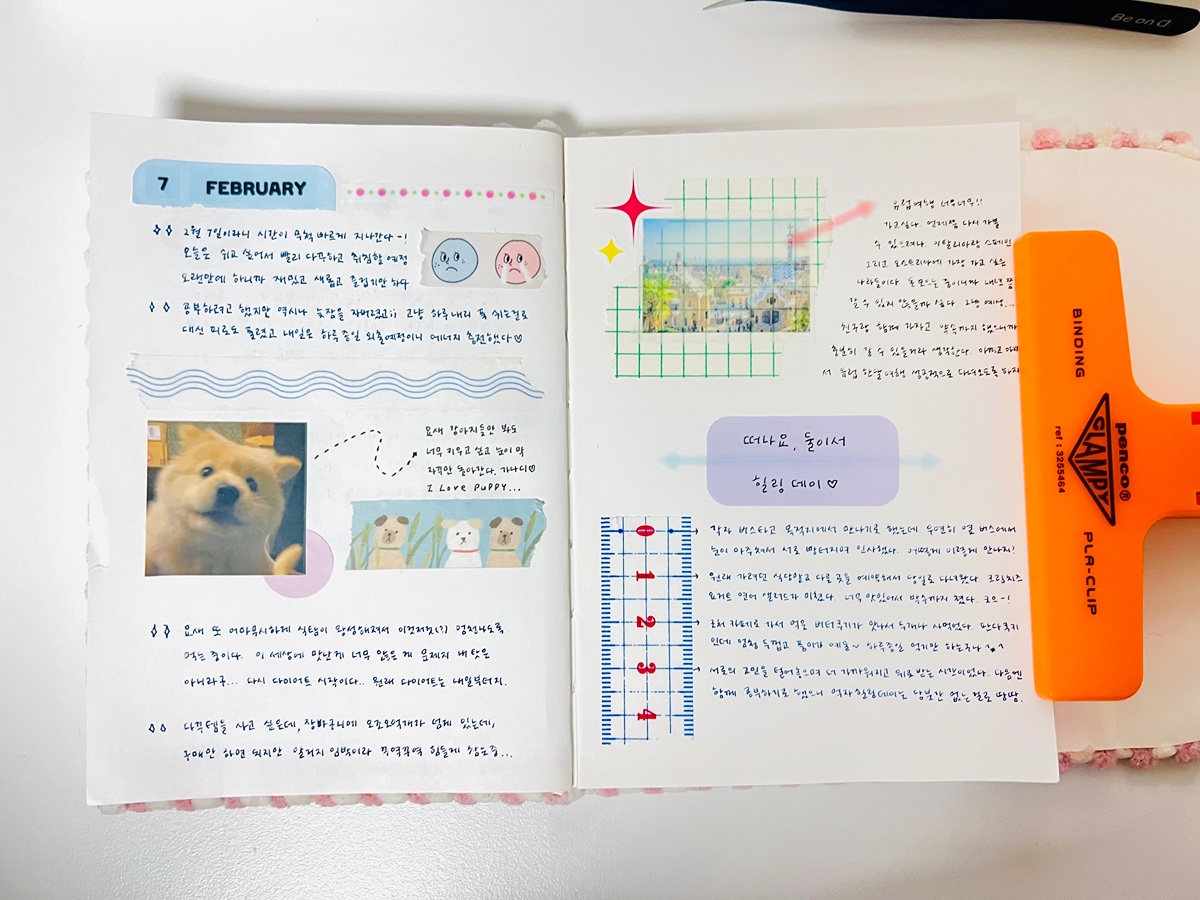 7 FEBRUARY
2월 7일이라니 시간이 무척 빠르게 지나간다-!
오늘은 쉬고 싶어서 빨리 다꾸하고 취침할 예정
오랜만에 하니까 재밌고 새롭고 즐겁지만 하다
공부하려고 했지만 역시나 늦잠을 자버렸고;; 그냥 하루내리 푹 쉬는걸로
대신 피로도 풀렸고 내일은 하루 종일 외출예정이니 에너지 충전했다♡
요새 강아지들만 봐도
너무 키우고 싶고 눈이 막
자꾸만 돌아간다. 가나디♡
I Love PUPPY...
요새 또 어마무시하게 식탐이 왕성해져서 이것저것(?) 엄청나도록
먹는 중이다. 이 세상에 맛난게 너무 많은 게 문제지 내 탓은
아니라구... 다시 다이어트 시작이다.. 원래 다이어트는 내일부터지.
다꾸템들 사고 싶은데, 장바구니에 오조오억개가 담겨 있는데,
구매만 하면 되지만 알거지 임박이라 꾸역꾸역 힘들게 참는중...
유럽여행 너무너무!!
가고싶다. 언제쯤 다시 가볼
수 있으려나. 이탈리아랑 스페인
그리고 오스트리아에 가장 가고 싶은
나라들이다. 돈 모으는 중이니까 내년쯤
갈 수 있지 않을까 싶다. 그냥 예상...
친구랑 함께 가자고 약속까지 했으니까
충분히 갈 수 있을거라 생각한다. 아끼고 아껴
서 유럽 한달 여행 성공적으로 다녀오도록 하자
떠나요, 둘이서
힐링 데이♡
각자 버스타고 목적지에서 만나기로 했는데 우연히 옆 버스에서
눈이 마주쳐서 서로 빵터지며 인사했다. 어떻게 이렇게 만나지?
원래 가려던 식당말고 다른 곳을 예약해서 당일로 다녀왔다. 크림치즈
요거트 연어 샐러드가 미쳤다. 너무 맛있어서 박수까지 쳤다. 굿으-!
근처 카페로 가서 먹은 버터쿠키가 맛나서 두개나 사먹었다. 판다쿠키
인데 엄청 두껍고 풍미가 예술~ 하루종일 먹지만 하는구나
서로의 고민을 털어놓으며 더 가까워지고 위로 받는 시간이었다. 다음엔
함께 공부하기로 했으니 먹자 힐링데이는 당분간 없는걸로 땅땅.
0
1
2
3
4
Be on D
BINDING
CLAMPY
penco®
ref : 3255464
PLA-CLIP